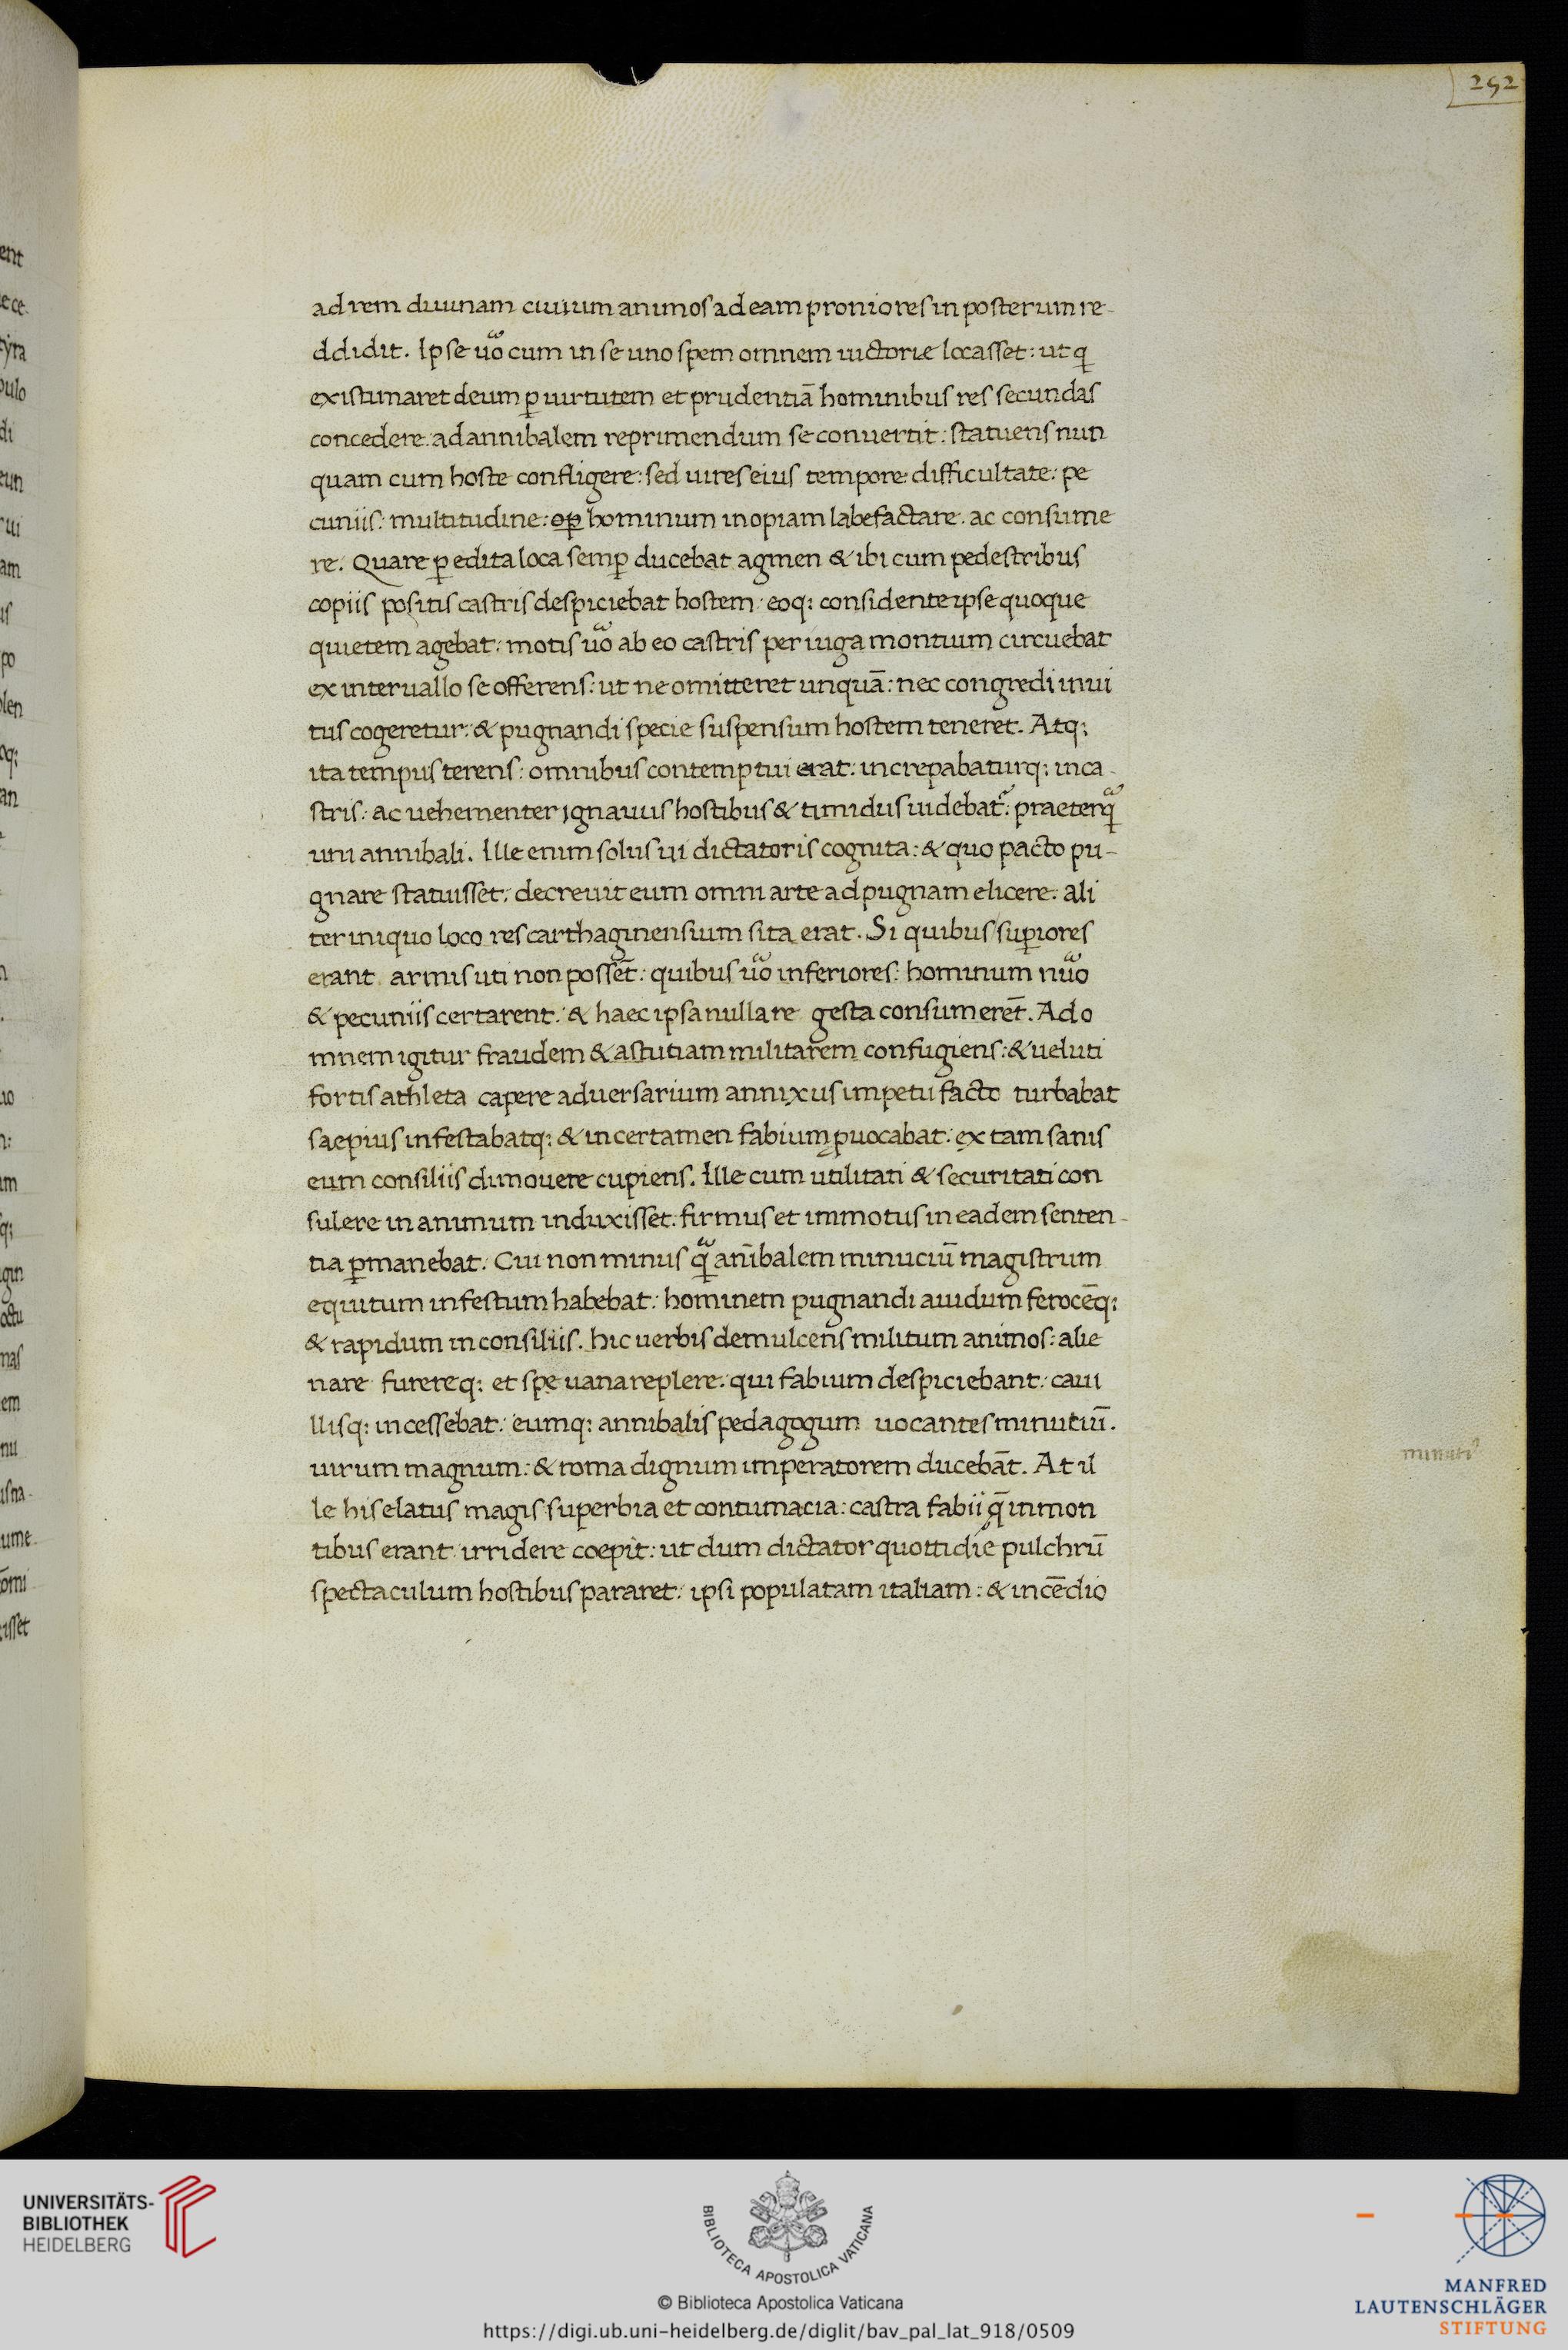 252
ad rem diuinam ciuium animos ad eam proniores in posterum re-
ddidit. Ipse uoᷓ cum in se uno spem omnem uictorie locasset: ut q̣
existimaret deum ꝑ uirtutem et prudentiā hominibus res secundas
concedere: ad annibalem reprimendum se conuertit: statuens nun
quam cum hoste confligere: sed uires eius tempore: difficultate: pe
cuniis: multitudine: oꝑ hominum inopiam labefactare. ac consume
re. Quare ꝑ edita loca semꝑ ducebat agmen & ibi cum pedestribus
copiis positis castris despiciebat hostem: eoq; considente ipse quoque
quietem agebat: motis uoᷓ ab eo castris per iuga montium circuebat
ex interuallo se offerens: ut ne omitteret unquā: nec congredi inui
tus cogeretur: & pugnandi specie suspensum hostem teneret. Atq;
ita tempus terens: omnibus contemptui erat: increpabaturq; in ca-
stris: ac uehementer ignauus hostibus & timidus uidebat᷑: praeterqᷓ
uni annibali. Ille enim solus ui dictatoris cognita: & quo pacto pu-
gnare statuisset: decreuit eum omni arte ad pugnam elicere: ali
ter iniquo loco res carthaginensium sita erat. Si quibus suꝑiores
erant armis uti non possēt: quibus uoᷓ inferiores: hominum nuoᷓ
& pecuniis certarent: & haec ipsa nulla re gesta consumerēt. Ad o
mnem igitur fraudem & astutiam militarem confugiens: & ueluti
fortis athleta capere aduersarium annixus impetu facto turbabat
saepius infestabatq; & in certamen fabium ꝓuocabat: ex tam sanis
eum consiliis dimouere cupiens. Ille cum utilitati & securitati con
sulere in animum induxisset: firmus et immotus in eadem senten-
tia ꝑmanebat. Cui non minus qᷓ anībalem minuciū magistrum
equitum infestum habebat: hominem pugnandi auidum ferocēq;
& rapidum in consiliis. hic uerbis demulcens militum animos: alie
nare furereq; et spe uana replere: qui fabium despiciebant: caui
llisq; incessebat: eumq; annibalis pedagogum uocantes minutiū.
uirum magnum: & roma dignum imperatorem ducebāt. At il
le his elatus magis superbia et contumacia: castra fabii q̄ in mon
tibus erant irridere coepit: ut dum dictator quottidie pulchrū
spectaculum hostibus pararet: ipsi populatam italiam: & incēdio
UNIVERSITÄTS-
BIBLIOTHEK
HEIDELBERG
BIBLIOTECA APOSTOLICA VATICANA
© Biblioteca Apostolica Vaticana
https://digi.ub.uni-heidelberg.de/diglit/bav_pal_lat_918/0509
MANFRED
LAUTENSCHLÄGER
STIFTUNG